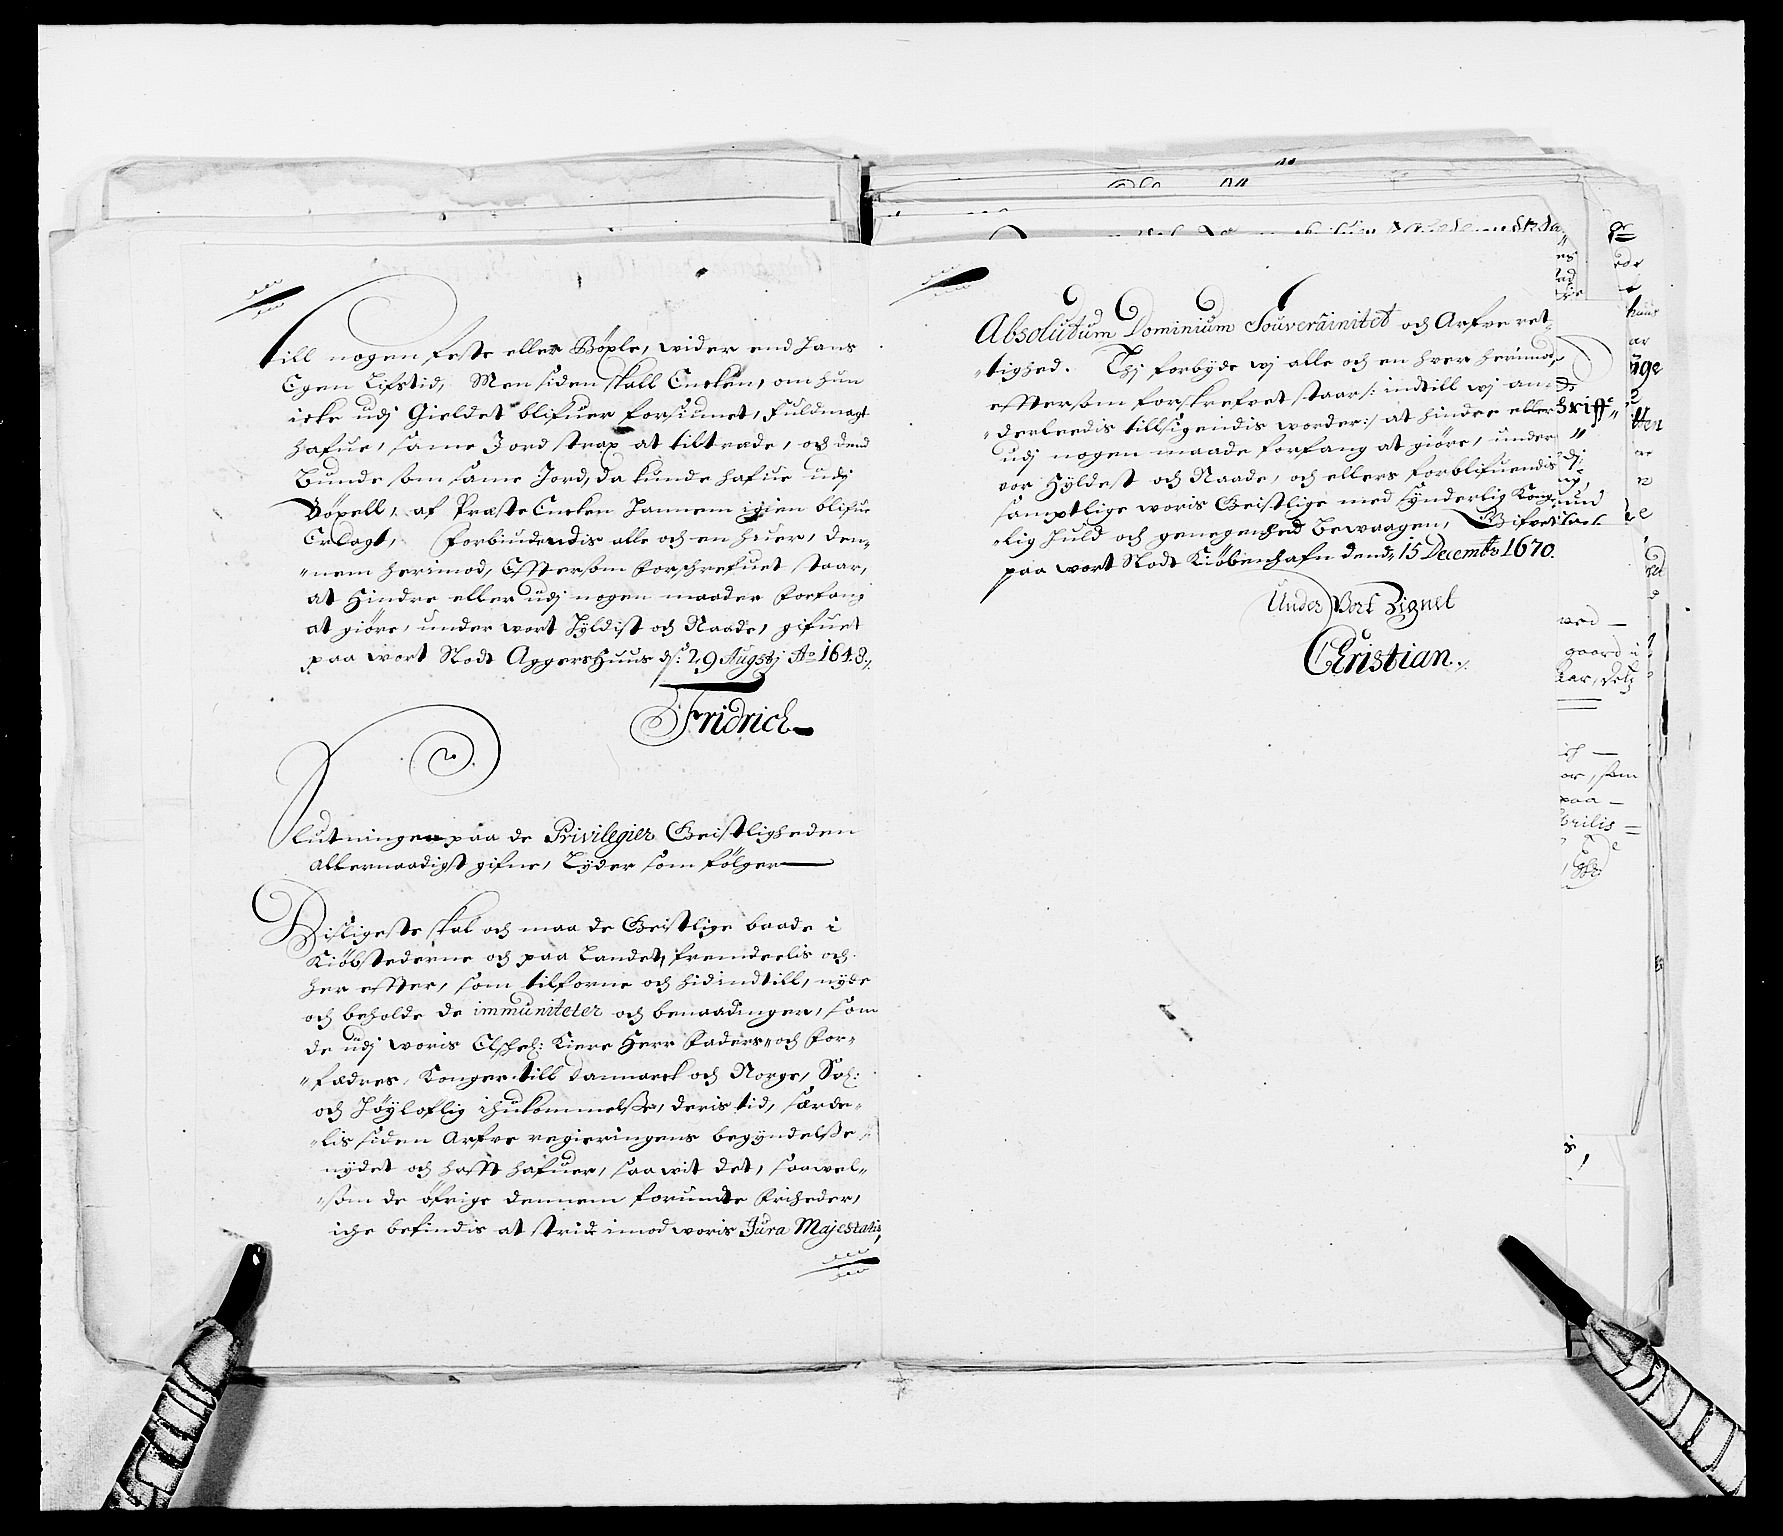 Till nogen feste eller Böxle, wider end hans
Egen Lifstid, Men siden skall Encken, om hun
icke udj Gieldet blifuer forsiumet, Fuldmagt
hafue, same Jord strax at tiltræde, och dend
Bunde som same Jord, da kunde hafue udj
Böxell, af Præste Encken hannem igien blifue
Erlagt, Forbiudendis alle och en huer, den„
„nem herimod, Eftersom forschrefuet staar,
at Hindre eller udj nogen maader forfang
at giöre, under wort Hyldist och Naade, gifuet
paa wort Slodt AggersHuus ds: 29 Augstj Ao 1648.,
Fridrich
Slutningen paa de Privilegier Geistligheden
allernaadigst gifne, Lyder som fölger
Disligeste skal och maa de Geistlige baade i
Kiöbstederne och paa Landet, fremdeelis och
her effter, som tilforne och hidindtill, nyde
och beholde de immuniteter och benaadinger, som
de udj woris Elschel: Kiere Herr Faders„ och For„
„fædres, Konger till Danmarck och Norge, Sal:
och Höyloflig ihukommelsse, deris tid, særde„
„lis siden Arfve regieringens begyndelsse
nydet och hafft hafuer, saawit det, saawel„
„som de öfrige dennem forundte Friheder,
iche befindis at stride imod woris Jura Majestatis,
Absolutum Dominium Souverainitet och Arfve ret„
„tighed. Thj forbyde wj alle och en hver herimod,
efftersom forskrefvet staar /: indtill wj an„
„derleedis tillsigendis worder:/ at hindre eller
udj nogen maade forfang at giöre, under
vor Hyldest och Naade, och ellers forblifuendis
samptlige woris Geistlige med synderlig Kong„
„lig huld och genegenhed bewaagen, Gifvet
paa wort Slodt Kiöbenhafn dend, 15 Decembr 1670.
Under Vort Zignet
Christian.